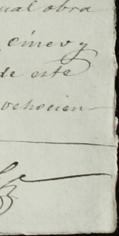 ual obra
cinco y
de este
ochocien